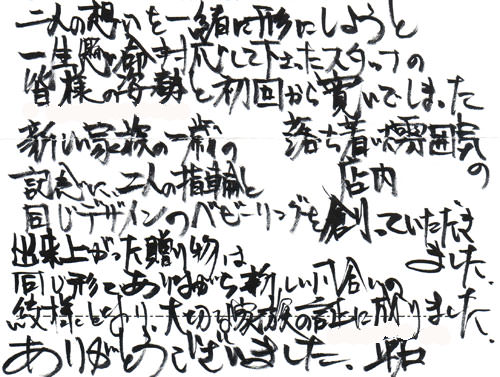 二人の想いを一緒に形にしようと
一生懸命対応して下さったスタッフの
皆様の姿勢と初回から寛いでしまった
落ち着いた雰囲気の
店内
新しい家族の一歩の
記念に、二人の指輪と
同じデザインのベビーリングを創っていただき
ました。
出来上がった贈り物は
同じ形でありながら新しい風合いの
紋様となり、大切な家族の証に成りました。
ありがとうございました。